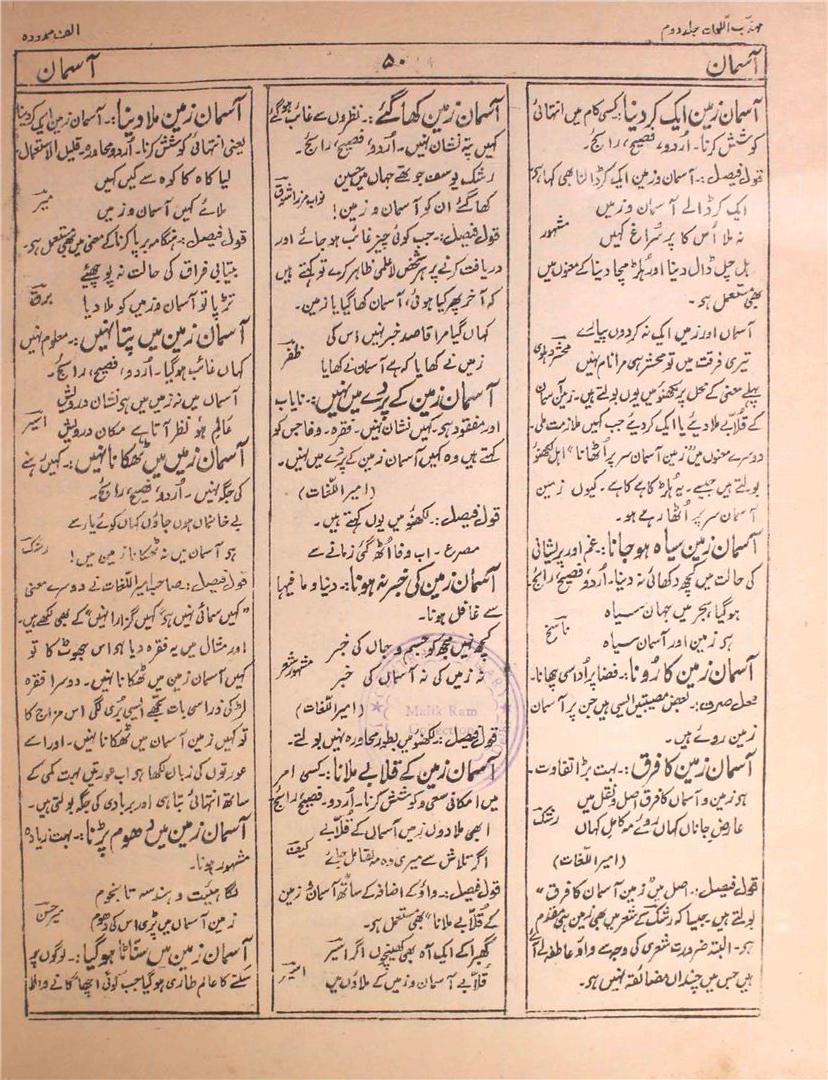 مہذب اللغات جلد دوم
الف ممدودہ
آسمان
۵۰
آسمان
آسمان زمین ایک کر دینا:۔ کسی کام میں انتہائی
کوشش کرنا۔ اُردو، فصیح، رائج۔
قول فیصل:۔ آسمان و زمین ایک کر ڈالنا بھی کہا ہے
ایک کر ڈالے آسمان و زمیں
نہ ملا اُس کا پر سُراغ کہیں
مشہور
ہل چل ڈال دینا اور ہُلّڑ مچا دینا کے معنوں میں
بھی مستعمل ہے۔
آسماں اور زمیں ایک نہ کردوں پیارے
تیری فرقت میں تو محشر ہی مرا نام نہیں
محشر دہلوی
پہلے معنی کے محل پر لکھنؤ میں یوں بولتے ہیں۔ زمین آسمان
کے قلابے ملا دیے یا ایک کر دیے جب کہیں ملازمت ملی۔
دوسرے معنوں میں "زمین آسمان سر پر اٹھانا" اہل لکھنؤ
بولتے ہیں جیسے۔ یہ ہلّڑ کاہے کا ہے۔ کیوں زمین
آسمان سر پر اُٹھا رہے ہو۔
آسمان زمین سیاہ ہو جانا:۔ غم اور پریشانی
کی حالت میں کچھ دکھائی نہ دینا۔ اُردو، فصیح، رائج۔
ہو گیا ہجر میں جہان سیاہ
ہے زمین اور آسمان سیاہ
ناسخ
آسمان زمین کا رونا:۔ فضا پر اُداسی چھانا۔
محل صرف:۔ بعض مصیبتیں ایسی ہیں جن پر آسمان
زمین روئے ہیں۔
آسمان زمین کا فرق:۔ بہت بڑا تفاوت۔
ہے زمین و آسماں کا فرق اصل و نقل میں
عارضِ جاناں کہاں روئے مہ کامل کہاں
رشک
(امیر اللغات)
قول فیصل:۔ اصل میں "زمین آسمان کا فرق"
بولتے ہیں جیسا کہ رشک کے شعر میں بھی زمین ہی مقدم
ہے۔ البتہ ضرورت شعری کی وجہ سے واو عاطفہ لے آئے
ہیں جس میں چنداں مضائقہ نہیں ہے۔
آسمان زمین کھا گئے:۔ نظروں سے غائب ہو گئے
کہیں پتہ نشان نہیں۔ اُردو، فصیح، رائج۔
رشک یوسف جو تھے جہاں میں حسین
کھا گئے ان کو آسمان و زمین!
نواب مرزا شوق
قول فیصل:۔ جب کوئی چیز غائب ہو جائے اور
دریافت کرنے پر ہر شخص لاعلمی ظاہر کرے تو کہتے ہیں
کہ آخر پھر کیا ہوئی، آسمان کھا گیا یا زمین۔
کہاں گیا مرا قاصد خبر نہیں اس کی
زمیں نے کھایا کہ ہے آسماں نے کھایا
ظفر
آسمان زمین کے پردے میں نہیں:۔ نایاب
اور مفقود ہے۔ کہیں نشان نہیں۔ فقرہ۔ وفا جس کو
کہتے ہیں وہ کہیں آسمان زمین کے پردے میں نہیں۔
(امیر اللغات)
قول فیصل:۔ لکھنؤ میں یوں کہتے ہیں۔
مصرع۔ اب وفا اُٹھ گئی زمانے سے
آسمان زمین کی خبر نہ ہونا:۔ دنیا و ما فیہا
سے غافل ہونا۔
کچھ نہیں مجھ کو جسم و جاں کی خبر
نہ زمیں کی نہ آسماں کی خبر
مشہور شعر
(امیر اللغات)
Malik Ram
قول فیصل:۔ لکھنؤ میں بطور محاورہ نہیں بولتے۔
آسمان زمین کے قلابے ملانا:۔ کسی امر
میں امکانی سعی و کوشش کرنا۔ اُردو۔ فصیح، رائج
ابھی ملادوں زمیں آسماں کے قلابے
اگر تلاش سے میری وہ مہ لقا مل جائے
کیف
قول فیصل:۔ واؤ کے اضافہ کے ساتھ آسمان و زمین
کے قلابے ملانا" بھی مستعمل ہے۔
گھبرا کے ایک آہ بھی کھینچوں اگر اسیر
قلابے آسمان و زمیں کے ملا دوں میں
اسیر
آسمان زمین ملا دینا:۔ آسمان زمین ایک کر دینا
یعنی انتہائی کوشش کرنا۔ اُردو محاورہ۔ قلیل الاستعمال
لیا کاہ کا کوہ سے کیں کہیں
ملائے کہیں آسمان و زمیں
میر
قول فیصل:۔ ہنگامہ برپا کرنا کے معنی میں بھی مستعمل ہے۔
بیتابیِ فراق کی حالت نہ پوچھئے
تڑپا تو آسمان و زمیں کو ملا دیا
برق
آسمان زمین میں پتا نہیں:۔ معلوم نہیں
کہاں غائب ہو گیا۔ اُردو، فصیح، رائج۔
آسماں میں نہ زمیں میں ہے نشان درویش
عالمِ ہو نظر آتا ہے مکان درویش
اسیر
آسمان زمین میں ٹھکانا نہیں:۔ کہیں رہنے
کی جگہ نہیں۔ اُردو، فصیح، رائج۔
بے خانماں ہوں جاؤں کہاں کوئے یار سے
ہے آسمان میں نہ ٹھکانا زمین میں!
رشک
قول فیصل:۔ صاحب امیر اللغات نے دوسرے معنی
"کہیں سمائی نہیں ہے، کہیں گزارا نہیں" کے بھی لکھے ہیں۔
اور مثال میں یہ فقرہ دیا ہے اس جھوٹ کا تو
کہیں آسمان زمین میں ٹھکانا نہیں۔ دوسرا فقرہ
لڑکی ذرا سی بات تجھے ایسی بُری لگی اس مزاج کا
تو کہیں زمین آسمان میں ٹھکانا نہیں۔ اور اسے
عورتوں کی زبان لکھا ہے اب عورتیں بہت کمی کے
ساتھ انتہائی تباہی اور بربادی کی جگہ بولتی ہیں۔
آسمان زمین میں دھوم پڑنا:۔ بہت زیادہ
مشہور ہونا۔
لگا ہیئت و ہندسہ تا نجوم
زمین آسماں میں پڑی اس کی دھوم
میر حسن
آسمان زمین میں سناٹا ہو گیا:۔ لوگوں پر
سکتے کا عالم طاری ہو گیا جب کوئی اچھا گانے والا